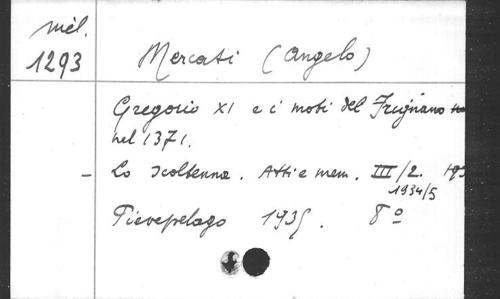 mél.
1293
Mercati (Angelo)
Gregorio XI e i moti del Frignano
nel 1371.
- Lo Scoltenna. Atti e mem. III/2.
1934/5
Pievepelago 1935. 8º